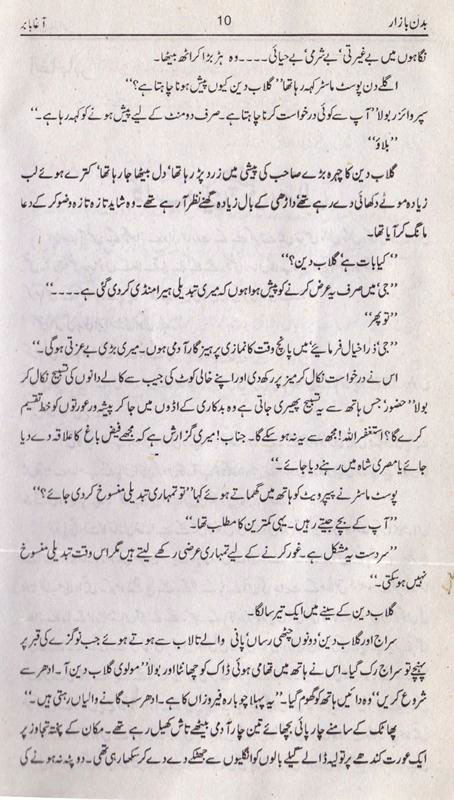 بدن بازار 10 آغا بابر
نگاہوں میں بے غیرتی‘ بے شرمی‘ بے حیائی ----وہ ہڑبڑا کر اٹھ بیٹھا۔
اگلے دن پوسٹ ماسٹر کہہ رہا تھا ”گلاب دین کیوں پیش ہونا چاہتا ہے؟“
سپروائزر بولا ”آپ سے کوئی درخواست کرنا چاہتا ہے۔ صرف دو منٹ کے لیے پیش ہونے کو کہہ رہا ہے۔“
”بلاؤ“
گلاب دین کا چہرہ بڑے صاحب کی پیشی میں زرد پڑ رہا تھا‘ دل بیٹھا جا رہا تھا‘ کترے ہوئے لب
زیادہ موٹے دکھائی دے رہے تھے داڑھی کے بال زیادہ گھنے نظر آ رہے تھے۔ وہ شاید تازہ تازہ وضو کر کے دعا
مانگ کر آیا تھا۔
”کیا بات ہے‘ گلاب دین؟“
”جی‘ میں صرف یہ عرض کرنے کو پیش ہوا ہوں کہ میری تبدیلی ہیرا منڈی کر دی گئی ہے----“
”تو پھر“
”جی‘ ذرا خیال فرمائیے‘ میں پانچ وقت کا نمازی پرہیز گار آدمی ہوں۔ میری بڑی بے عزتی ہوگی۔“
اس نے درخواست نکال کر میز پر رکھ دی اور اپنے خالی کوٹ کی جیب سے کالے دانوں کی تسبیح نکال کر
بولا ”حضور‘ جس ہاتھ سے یہ تسبیح پھیری جاتی ہے وہ بدکاری کے اڈوں میں جا کر پیشہ ور عورتوں کو خط تقسیم
کرے گا؟ استغفراللہ! مجھ سے یہ نہ ہو سکے گا۔ جناب! میری گزارش ہے کہ مجھے فیض باغ کا علاقہ دے دیا
جائے یا مصری شاہ میں رہنے دیا جائے۔“
پوسٹ ماسٹر نے پیپر ویٹ کو ہاتھ میں گھماتے ہوئے کہا ”تو تمہاری تبدیلی منسوخ کر دی جائے؟“
”آپ کے بچے جیتے رہیں۔ یہی کمترین کا مطلب تھا۔“
”سردست یہ مشکل ہے۔ غور کرنے کے لیے تمہاری عرضی رکھ لیتے ہیں مگر اس وقت تبدیلی منسوخ
نہیں ہو سکتی۔“
گلاب دین کے سینے میں ایک تیر سا لگا۔
سراج اور گلاب دین‘ دونوں چٹھی رساں‘ پانی والے تالاب سے ہوتے ہوئے جب نو گزے کی قبر پر
پہنچے تو سراج رک گیا۔ اس نے ہاتھ میں تھامی ہوئی ڈاک کو چھانٹا اور بولا ”مولوی گلاب دین آ۔ ادھر سے
شروع کریں“ وہ دائیں ہاتھ کو گھوم گیا۔ ”یہ پہلا چوبارہ فیروزاں کا ہے۔ ادھر سب گانے والیاں رہتی ہیں۔“
پھاٹک کے سامنے چارپائی بچھائے تین چار آدمی بیٹھے تاش کھیل رہے تھے۔ مکان کے پختہ تجاوز پر
ایک عورت کندھے پر تولیہ ڈالے گیلے بالوں کو انگلیوں سے جھٹکے دے دے کر سکھا رہی تھی۔ دوپٹہ نہ ہونے کی